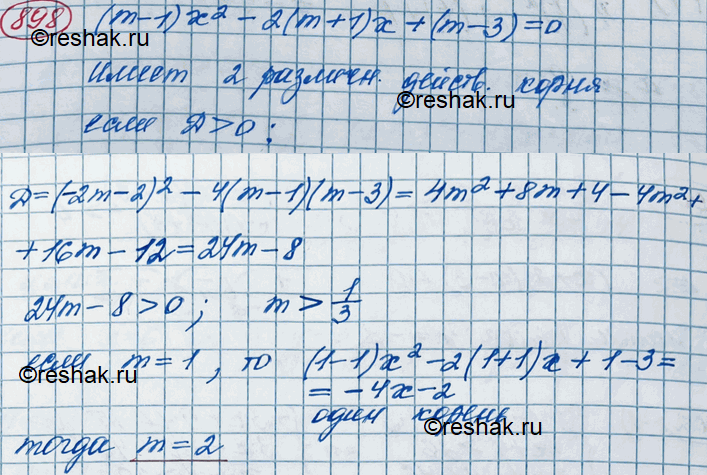 898 (m-1)x² - 2(m+1)x + (m-3) = 0
©reshak.ru
имеет 2 различн. действ. корня
©reshak.ru
если D>0;
D=(-2m-2)² - 4(m-1)(m-3) = 4m²+8m+4-4m²+
+16m-12=24m-8
24m-8>0; m>1/3
если m=1, то (1-1)x²-2(1+1)x+1-3=
©reshak.ru
= -4x-2
один корень
©reshak.ru
тогда m=2